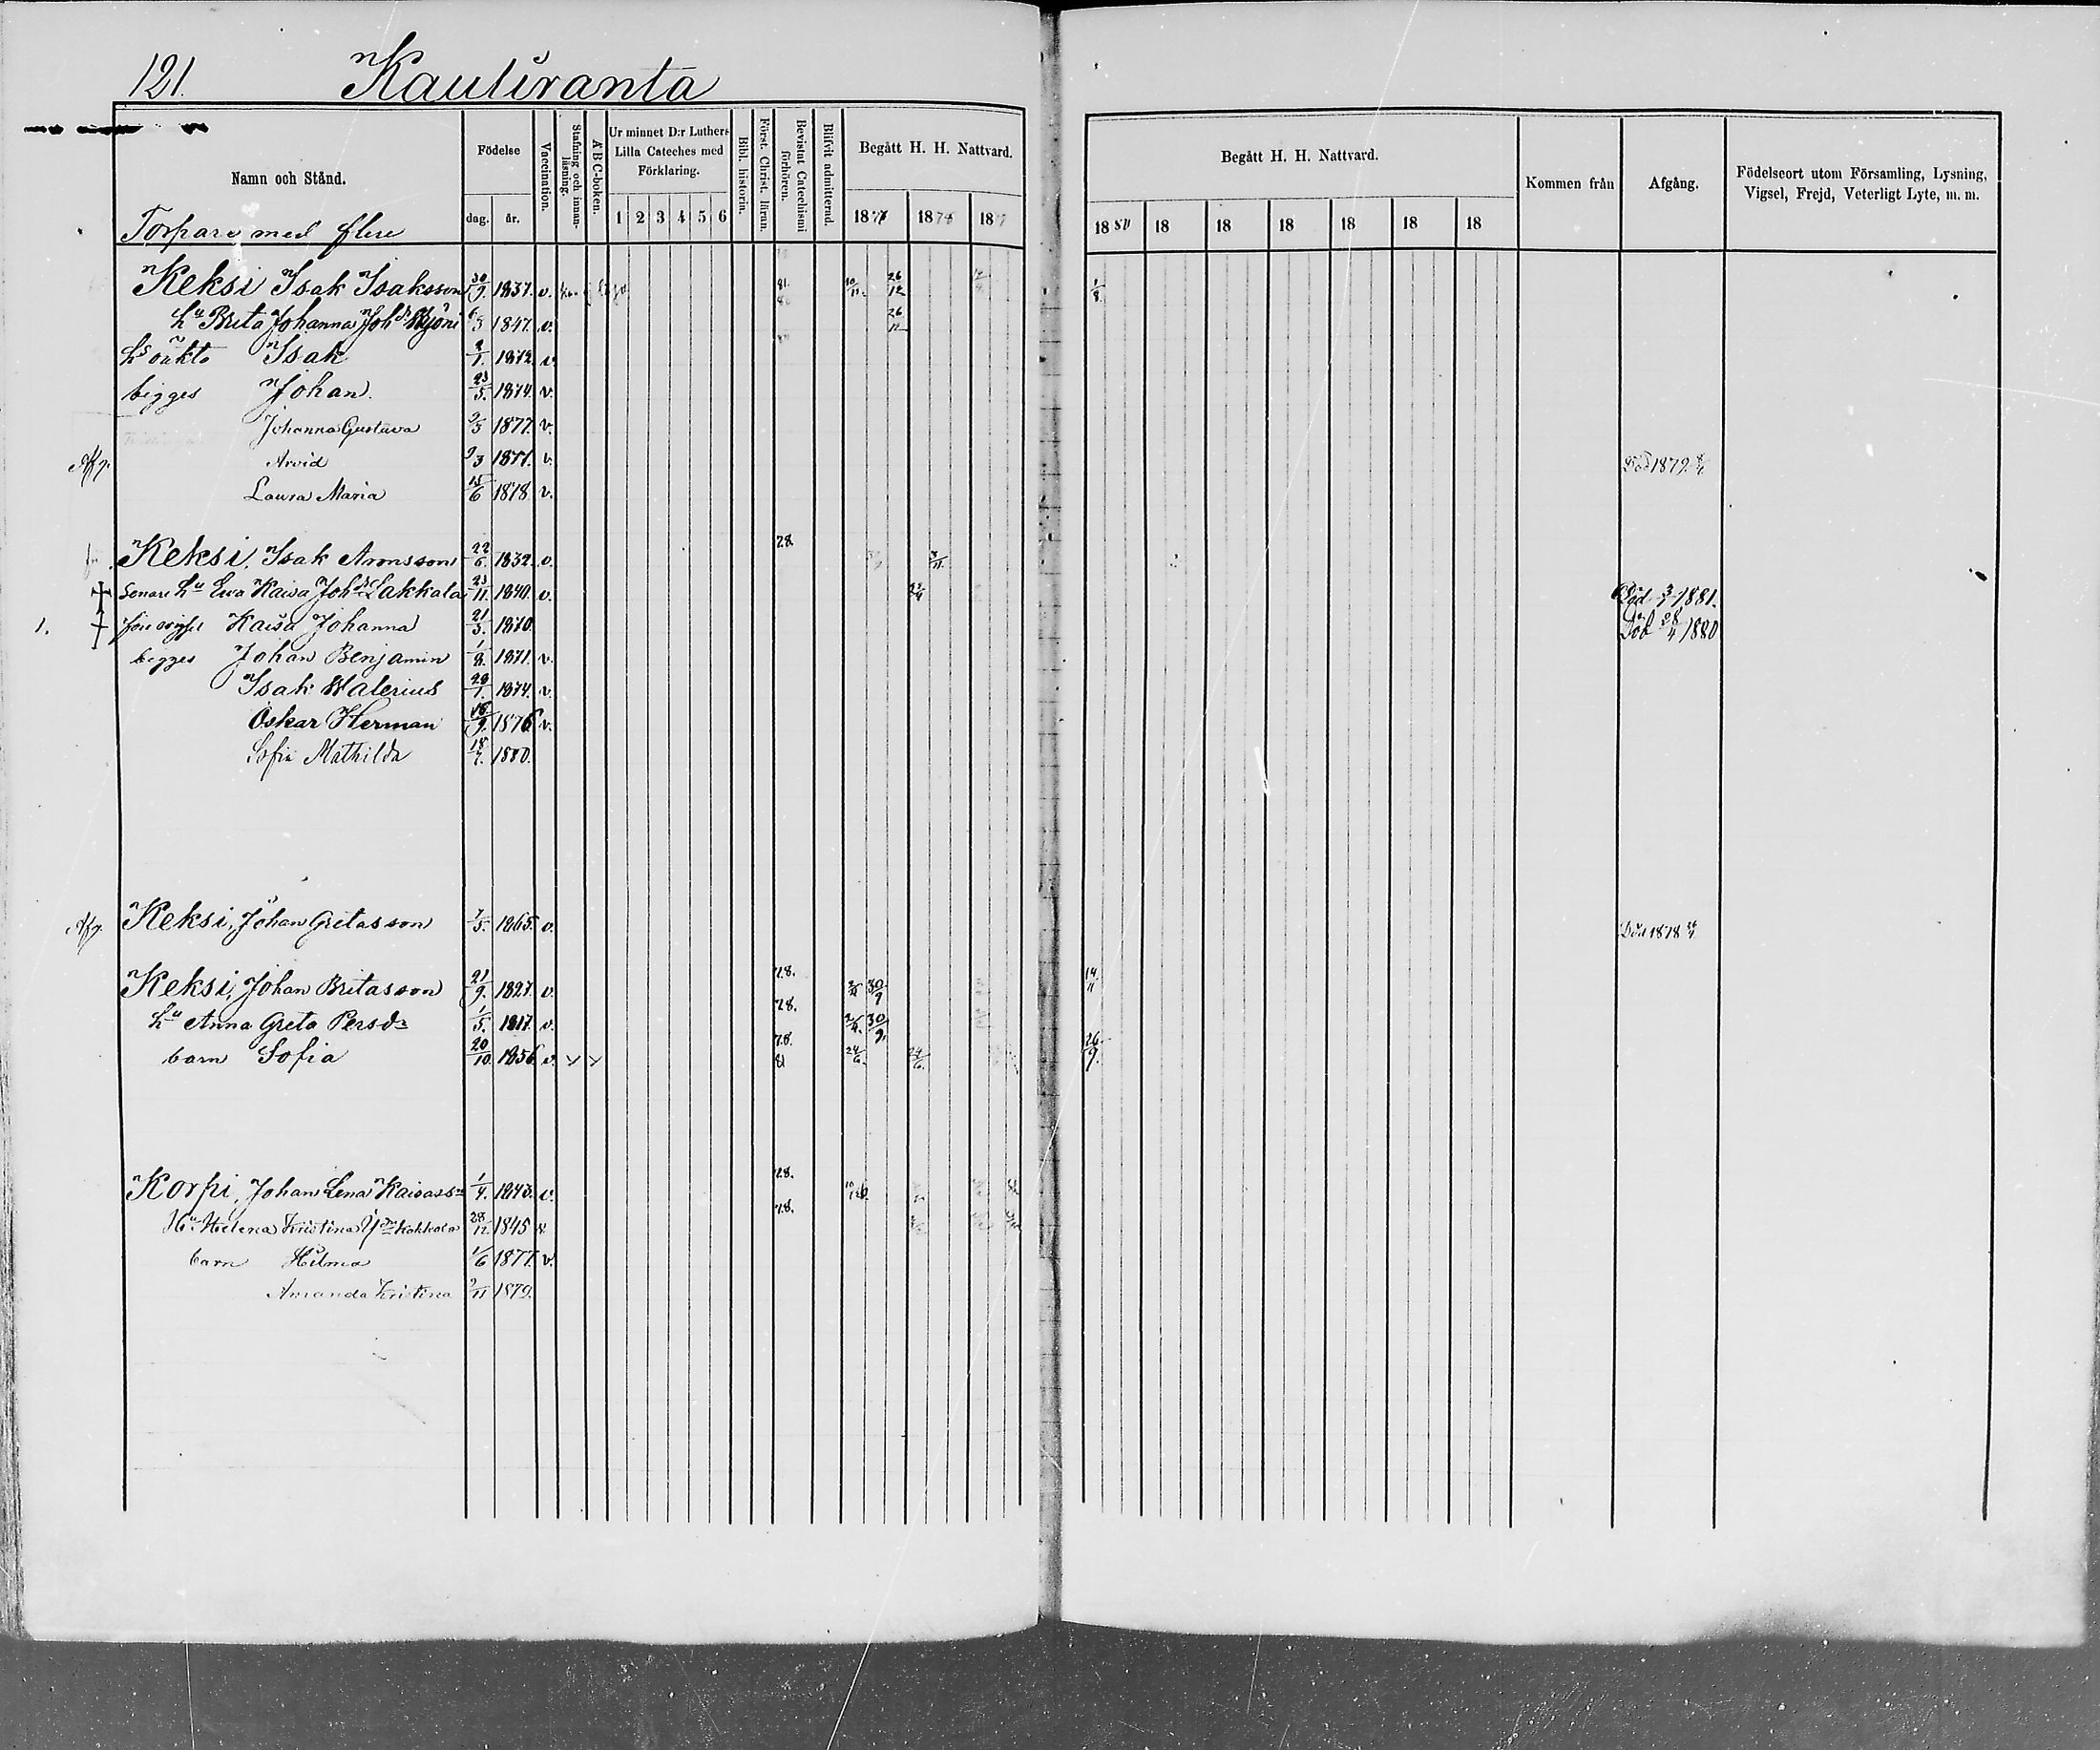 121. Kauliranta
Namn och Stånd. Födelse Vaccination. Stafning och innan-läsning. ABC-boken. Ur minnet D:r Luthers Lilla Cateches med Förklaring. Bibl. historia. Först. Christ. läran. Bevistat Catechismi förhören. Blifvit admitterad. Begått H. H. Nattvard. Begått H. H. Nattvard. Kommen från Afgång. Födelseort utom Församling, Lysning, Vigsel, Frejd, Veterligt Lyte, m. m.
dag. år. 1 2 3 4 5 6 1877 1878 187 1880 18 18 18 18 18 18
Torpare med flere
Keksi Isak Isaksson 30/9. 1837. v. 81. 10/11. 26/12 1/8
hu Brita Johanna Johsdr 6/3 1847. v. 26/12
hs oäkta Isak 2/1. 1872. v.
bigges Johan. 23/5. 1874. v.
Johanna Gustava 2/3 1877. v.
Afg. Arvid 2/3 1877. v. Död 1879
Laura Maria 15/6 1878. v.
Keksi, Isak Aronsson 22/6. 1832. v. 78
Senare hu Eva Kaisa Johsdr Lakkala 23/11. 1840. v. Död 3/1 1881.
1. före vigsel Kaisa Johanna 21/3. 1870. Död 28/4 1880
bigges Johan Benjamin 1/8. 1871. v.
Isak Walerius 28/1. 1874. v.
Oskar Herman 18/9. 1876 v.
Sofia Mathilda 18/7. 1880.
Afg. Keksi, Johan Gretasson 7/5. 1865. v. Död 1878
Keksi, Johan Britasson 21/9. 1827. v. 78. 30/9 14/11
hu Anna Greta Persdr 1/5. 1817. v. 78. 2/4. 30/9.
barn Sofia 20/10. 1856. v. 78. 81 24/6. 24/6. 26/9.
Korpi, Johan Lena Kaisass. 1/4. 1843. v. 78.
Hu. Helena Kristina Kokkola 28/12 1845 v. 78.
barn Hilma 1/6 1877. v.
Amanda Kristina 2/11 1879.